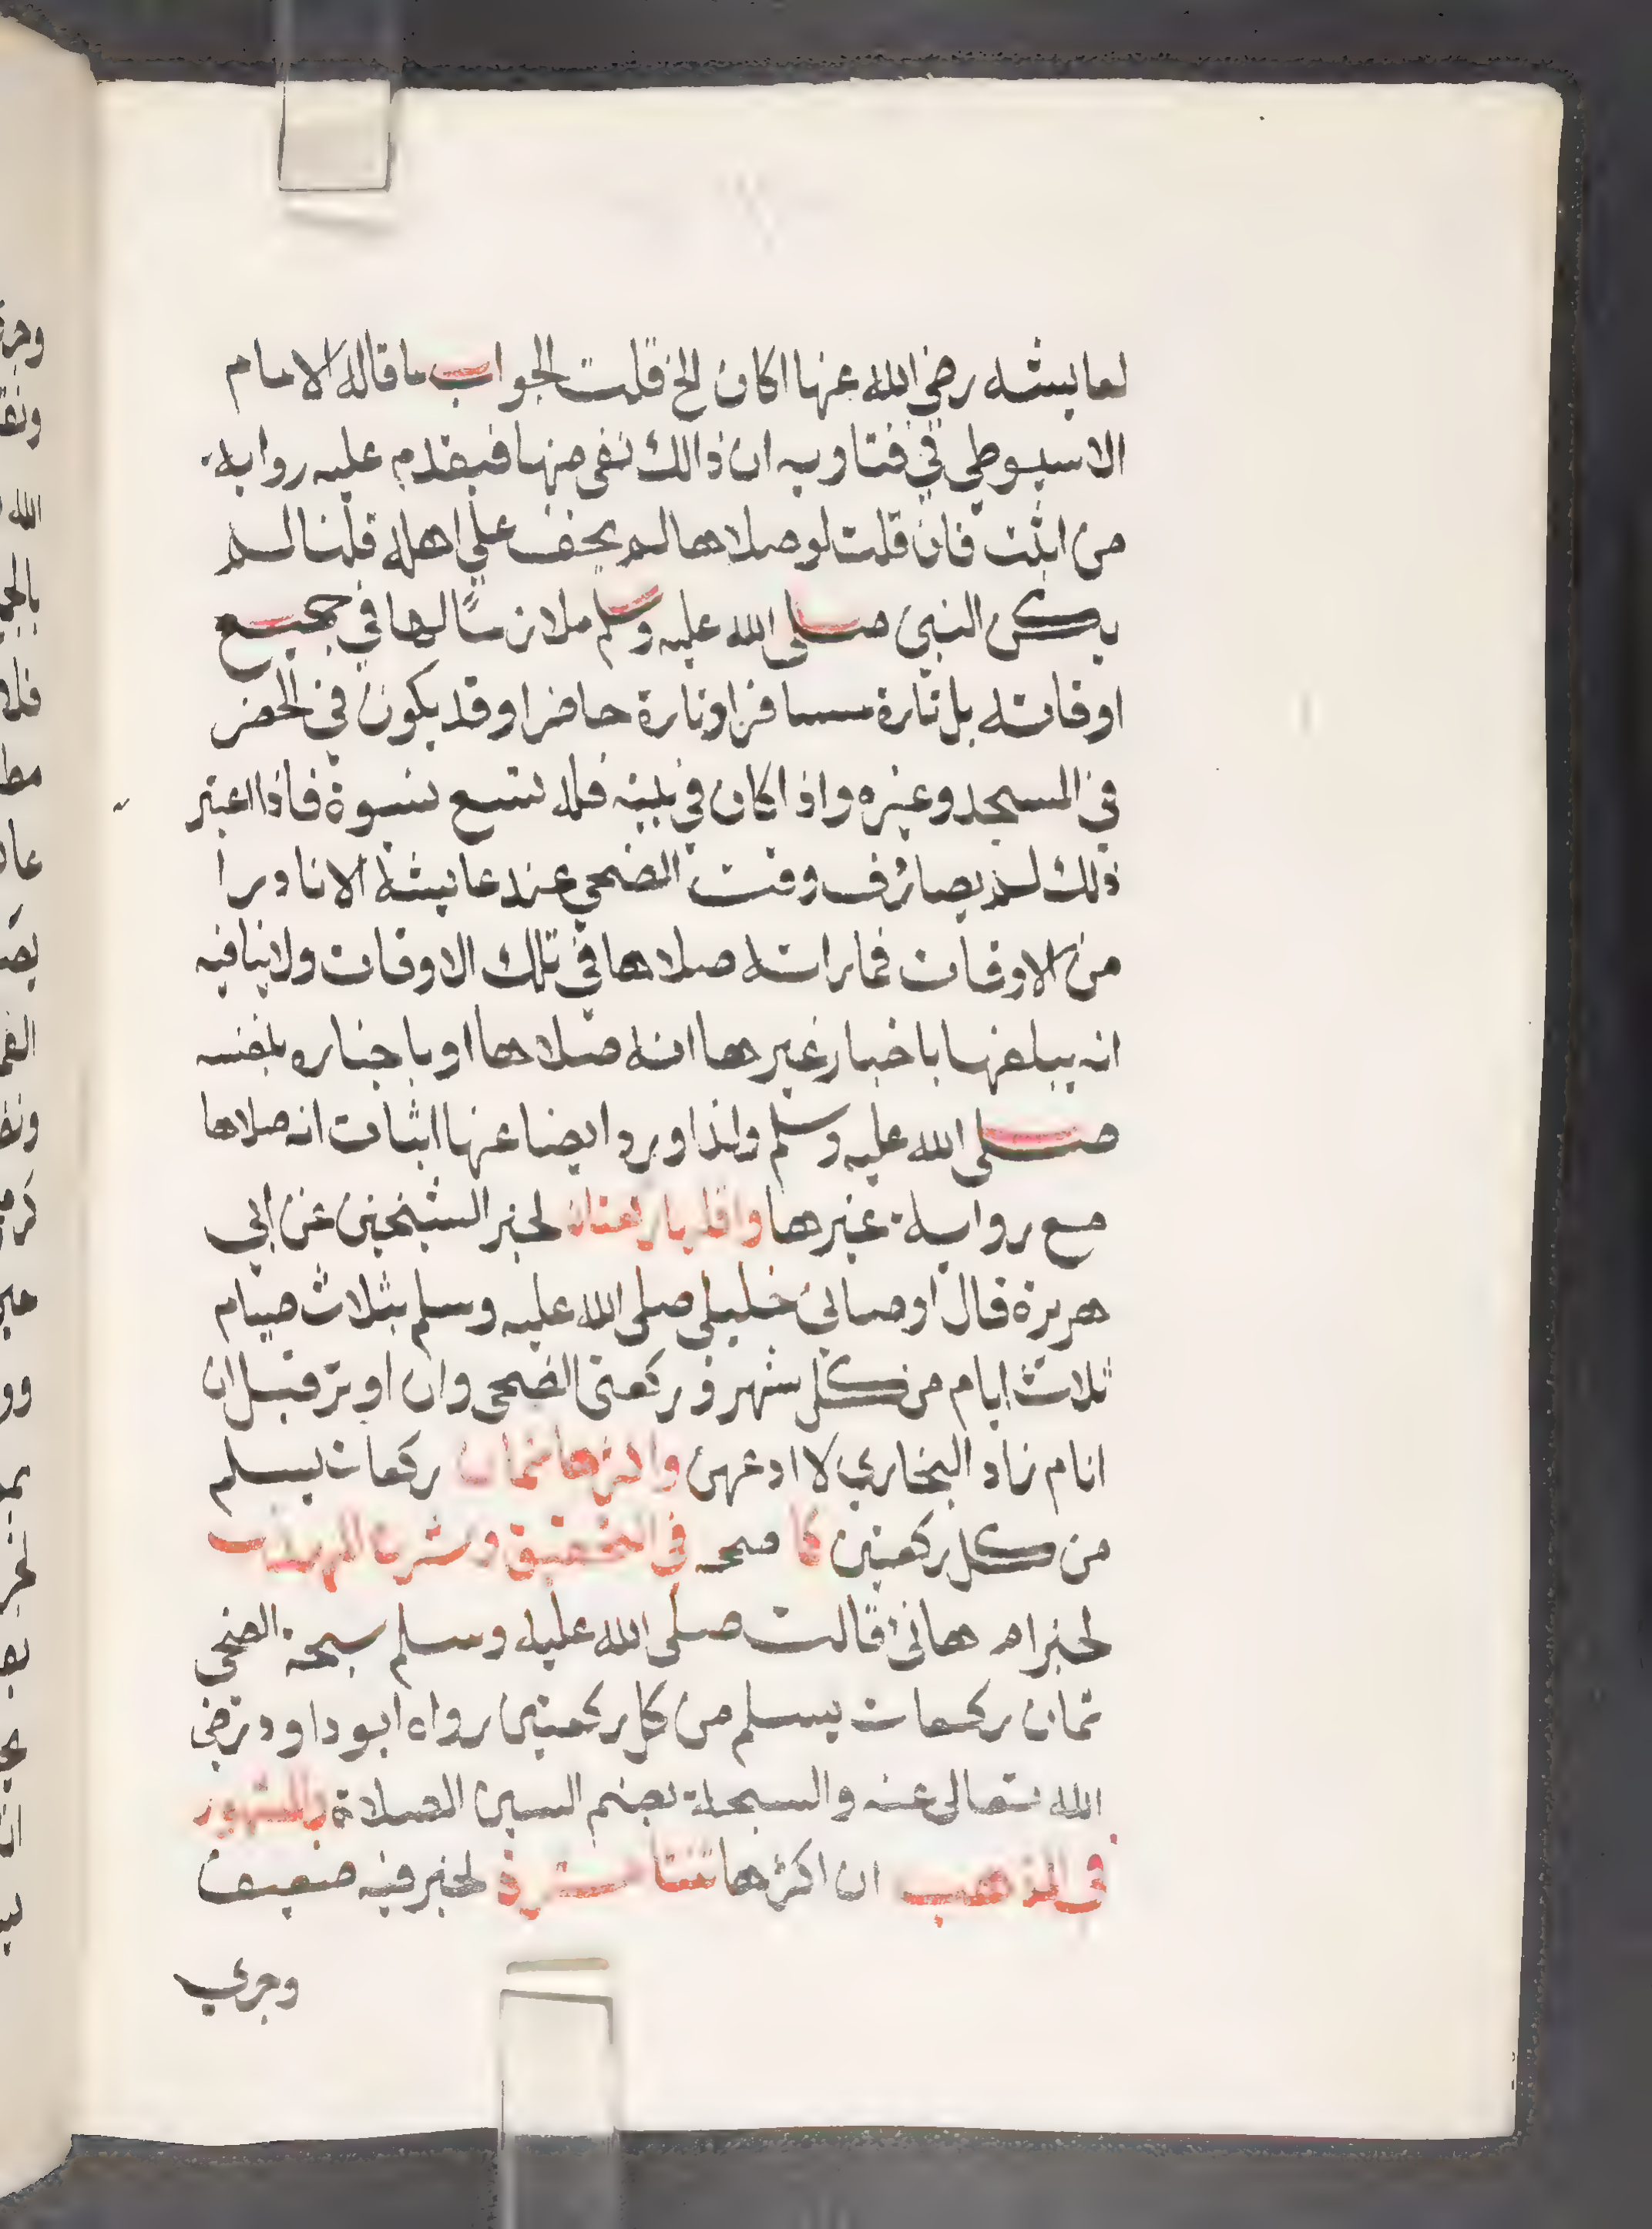 لعايشه رضي الله عنها اكان الخ قلت الجواب ما قاله الامام
الاسيوطي في فتاويه ان ذالك نفى منها فيقدم عليه رواية
من اثبت فان قلت لو صلاها لم يخف علي اهله قلنا لم
يكن النبي صلى الله عليه وسلم ملازما لها في جميع
اوقاته بل تارة مسافرا وتارة حاضرا وقد يكون في الحضر
في المسجد وغيره واذا كان في بيته فله تسع نسوة فاذا اعتبر
ذلك لم يصادف وقت الضحي عند عايشة الا نادرا
من الاوقات فما راته صلاها في تلك الاوقات ولا ينافيه
انه يبلغها باخبار غيرها انه صلاها او باخباره بنفسه
صلى الله عليه وسلم ولذا ورد ايضا عنها اثبات انه صلاها
مع رواية غيرها واقلها ركعتان لخبر الشيخين عن ابي
هريرة قال اوصاني خليلي صلى الله عليه وسلم بثلاث صيام
ثلاث ايام من كل شهر وركعتى الضحى وان اوتر قبل ان
انام زاد البخاري لا ادعهن واكثرها ثمان ركعات يسلم
من كل ركعتين كما صححه في التحقيق وشرح المهذب
لخبر ام هانئ قالت صلى الله عليه وسلم سبحة الضحي
ثمان ركعات يسلم من كل ركعتين رواه ابو داود رضي
الله تعالى عنه والسبحة بضم السين الصلاة والمشهور
في المذهب ان اكثرها ثنتا عشرة لخبر فيه ضعيف
وجري